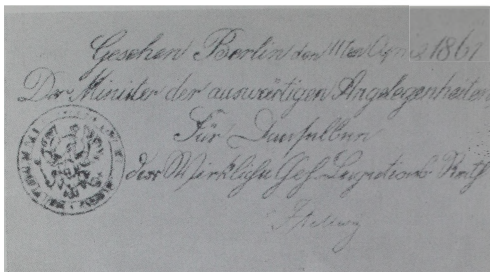 Gesehen Berlin den 11ten April 1861
Der Minister der auswärtigen Angelegenheiten
Für Denselben
der Wirkliche Geh. Legations Rath